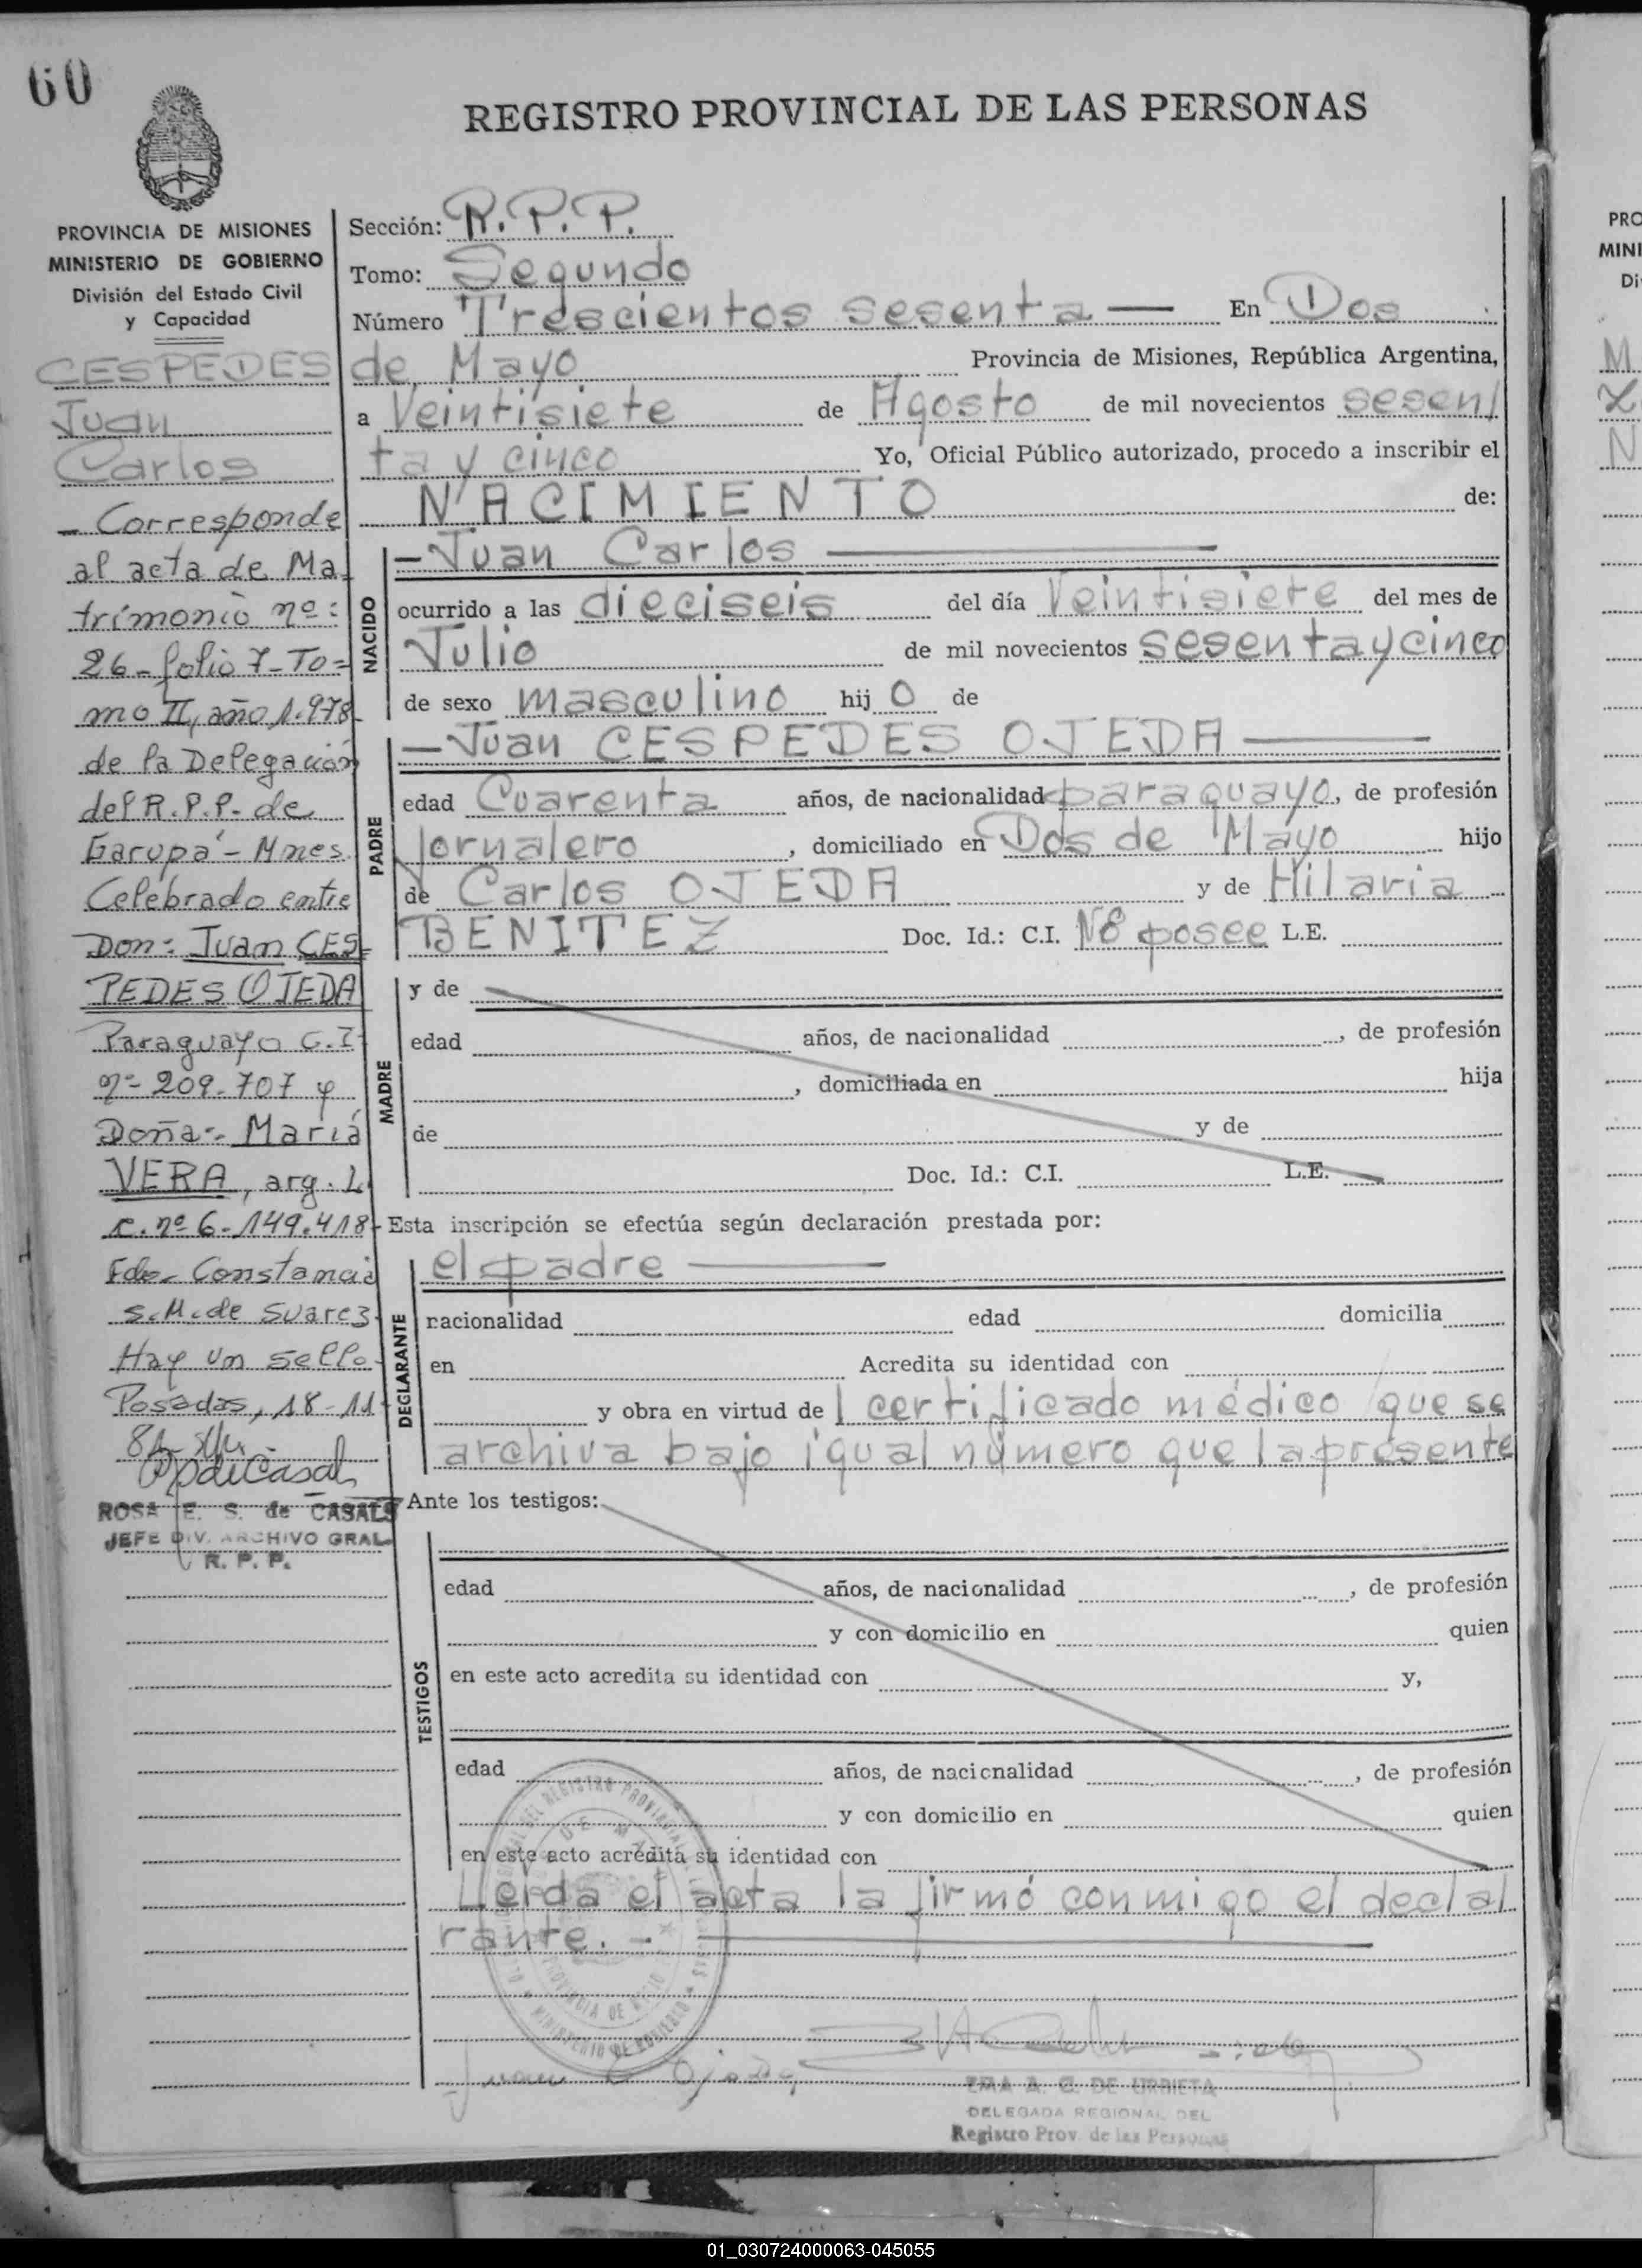 60
REGISTRO PROVINCIAL DE LAS PERSONAS
PROVINCIA DE MISIONES
MINISTERIO DE GOBIERNO
División del Estado Civil
y Capacidad
CESPEDES
Juan
Carlos
- Corresponde
al acta de Ma-
trimonio nº:
26 - folio 7 - To=
mo II, año 1.978-
de la Delegación
del R.P.P. de
Garupá - Mnes.
Celebrado entre
Don: Juan CES-
PEDES OJEDA
Paraguayo C.I.
nº 209.707 y
Doña: María
VERA, arg. L.
c. nº 6.149.418-
Fdo. Constancia
S.M. de Suarez-
Hay un sello-
Posadas, 18-11-
ROSA E. S. de CASALS
JEFE DIV. ARCHIVO GRAL.
R. P. P.
Sección: R.P.P.
Tomo: Segundo
Número Trescientos sesenta — En Dos
de Mayo Provincia de Misiones, República Argentina,
a Veintisiete de Agosto de mil novecientos sesen/
ta y cinco Yo, Oficial Público autorizado, procedo a inscribir el
NACIMIENTO de:
NACIDO
—Juan Carlos—
ocurrido a las dieciseis del día Veintisiete del mes de
Julio de mil novecientos sesentaycinco
de sexo masculino hij o de
PADRE
—Juan CESPEDES OJEDA—
edad Cuarenta años, de nacionalidad paraguayo, de profesión
jornalero, domiciliado en Dos de Mayo hijo
de Carlos OJEDA y de Hilaria
BENITEZ Doc. Id.: C.I. No posee L.E.
MADRE
y de
edad años, de nacionalidad , de profesión
, domiciliada en hija
de y de
Doc. Id.: C.I. L.E.
Esta inscripción se efectúa según declaración prestada por:
DECLARANTE
el padre —
nacionalidad edad domicilia
en Acredita su identidad con
y obra en virtud del certificado médico que se
archiva bajo igual número que la presente
Ante los testigos:
TESTIGOS
edad años, de nacionalidad , de profesión
y con domicilio en quien
en este acto acredita su identidad con y,
edad años, de nacionalidad , de profesión
y con domicilio en quien
en este acto acredita su identidad con
Leida el acta la firmó conmigo el decla/
rante. -
Juan C Ojeda
EMA A. C. DE URRIETA
DELEGADA REGIONAL DEL
Registro Prov. de las Personas
PRO
MINI
Di
M
N
01_030724000063-045055